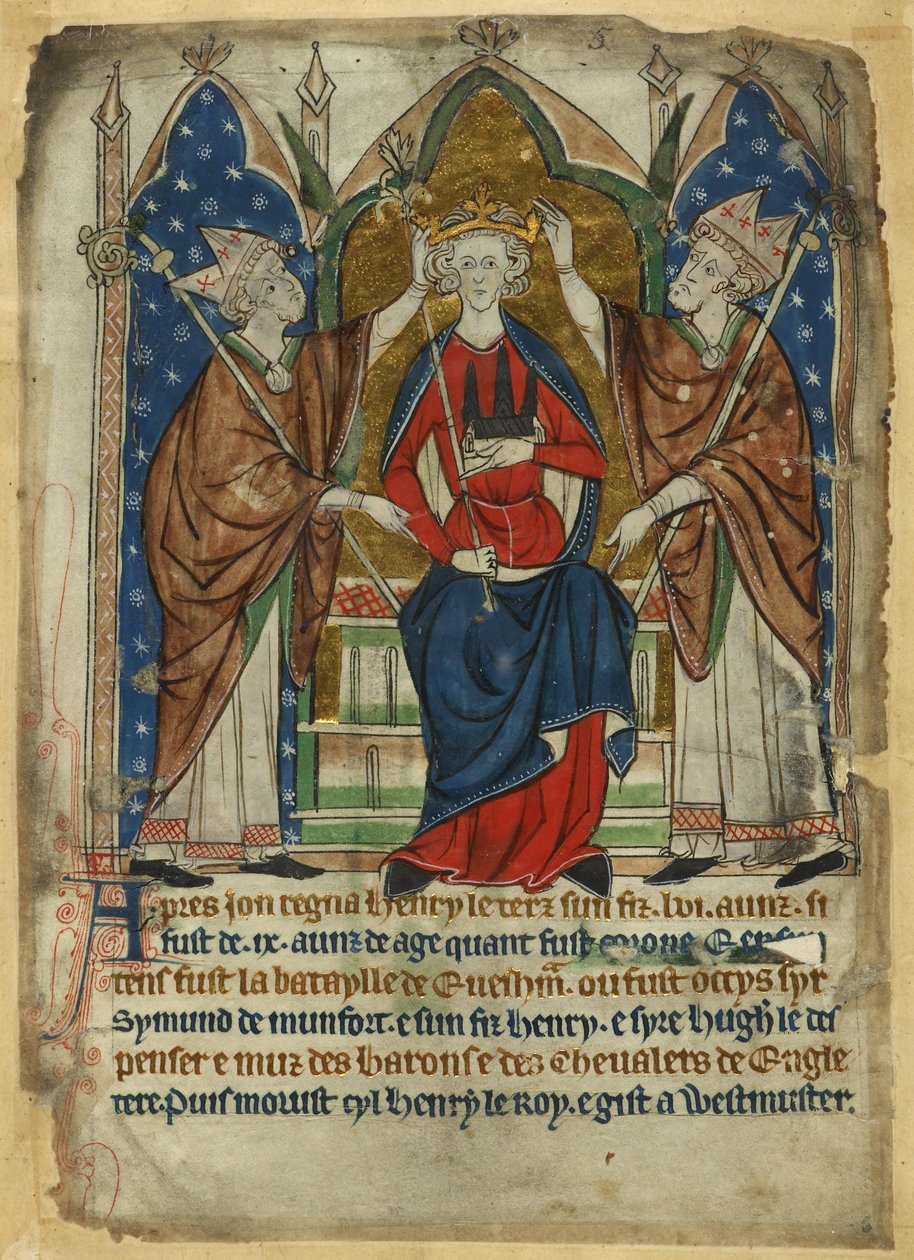 5
Apres Jon regna Henry le terz sun fiz. lvi. aunz. si
fust de. ix. aunz de age quant fust corone E en sun
tens fust la bataylle de Euesham. ou fust occys syr
Symund de munfort. e sun fiz Henry. e syre Hugh le des
penser e muz des Barons e des Cheualers de Engle
tere. Puis moruist cyl Henry le Roy. e gist a Westmuster.
6